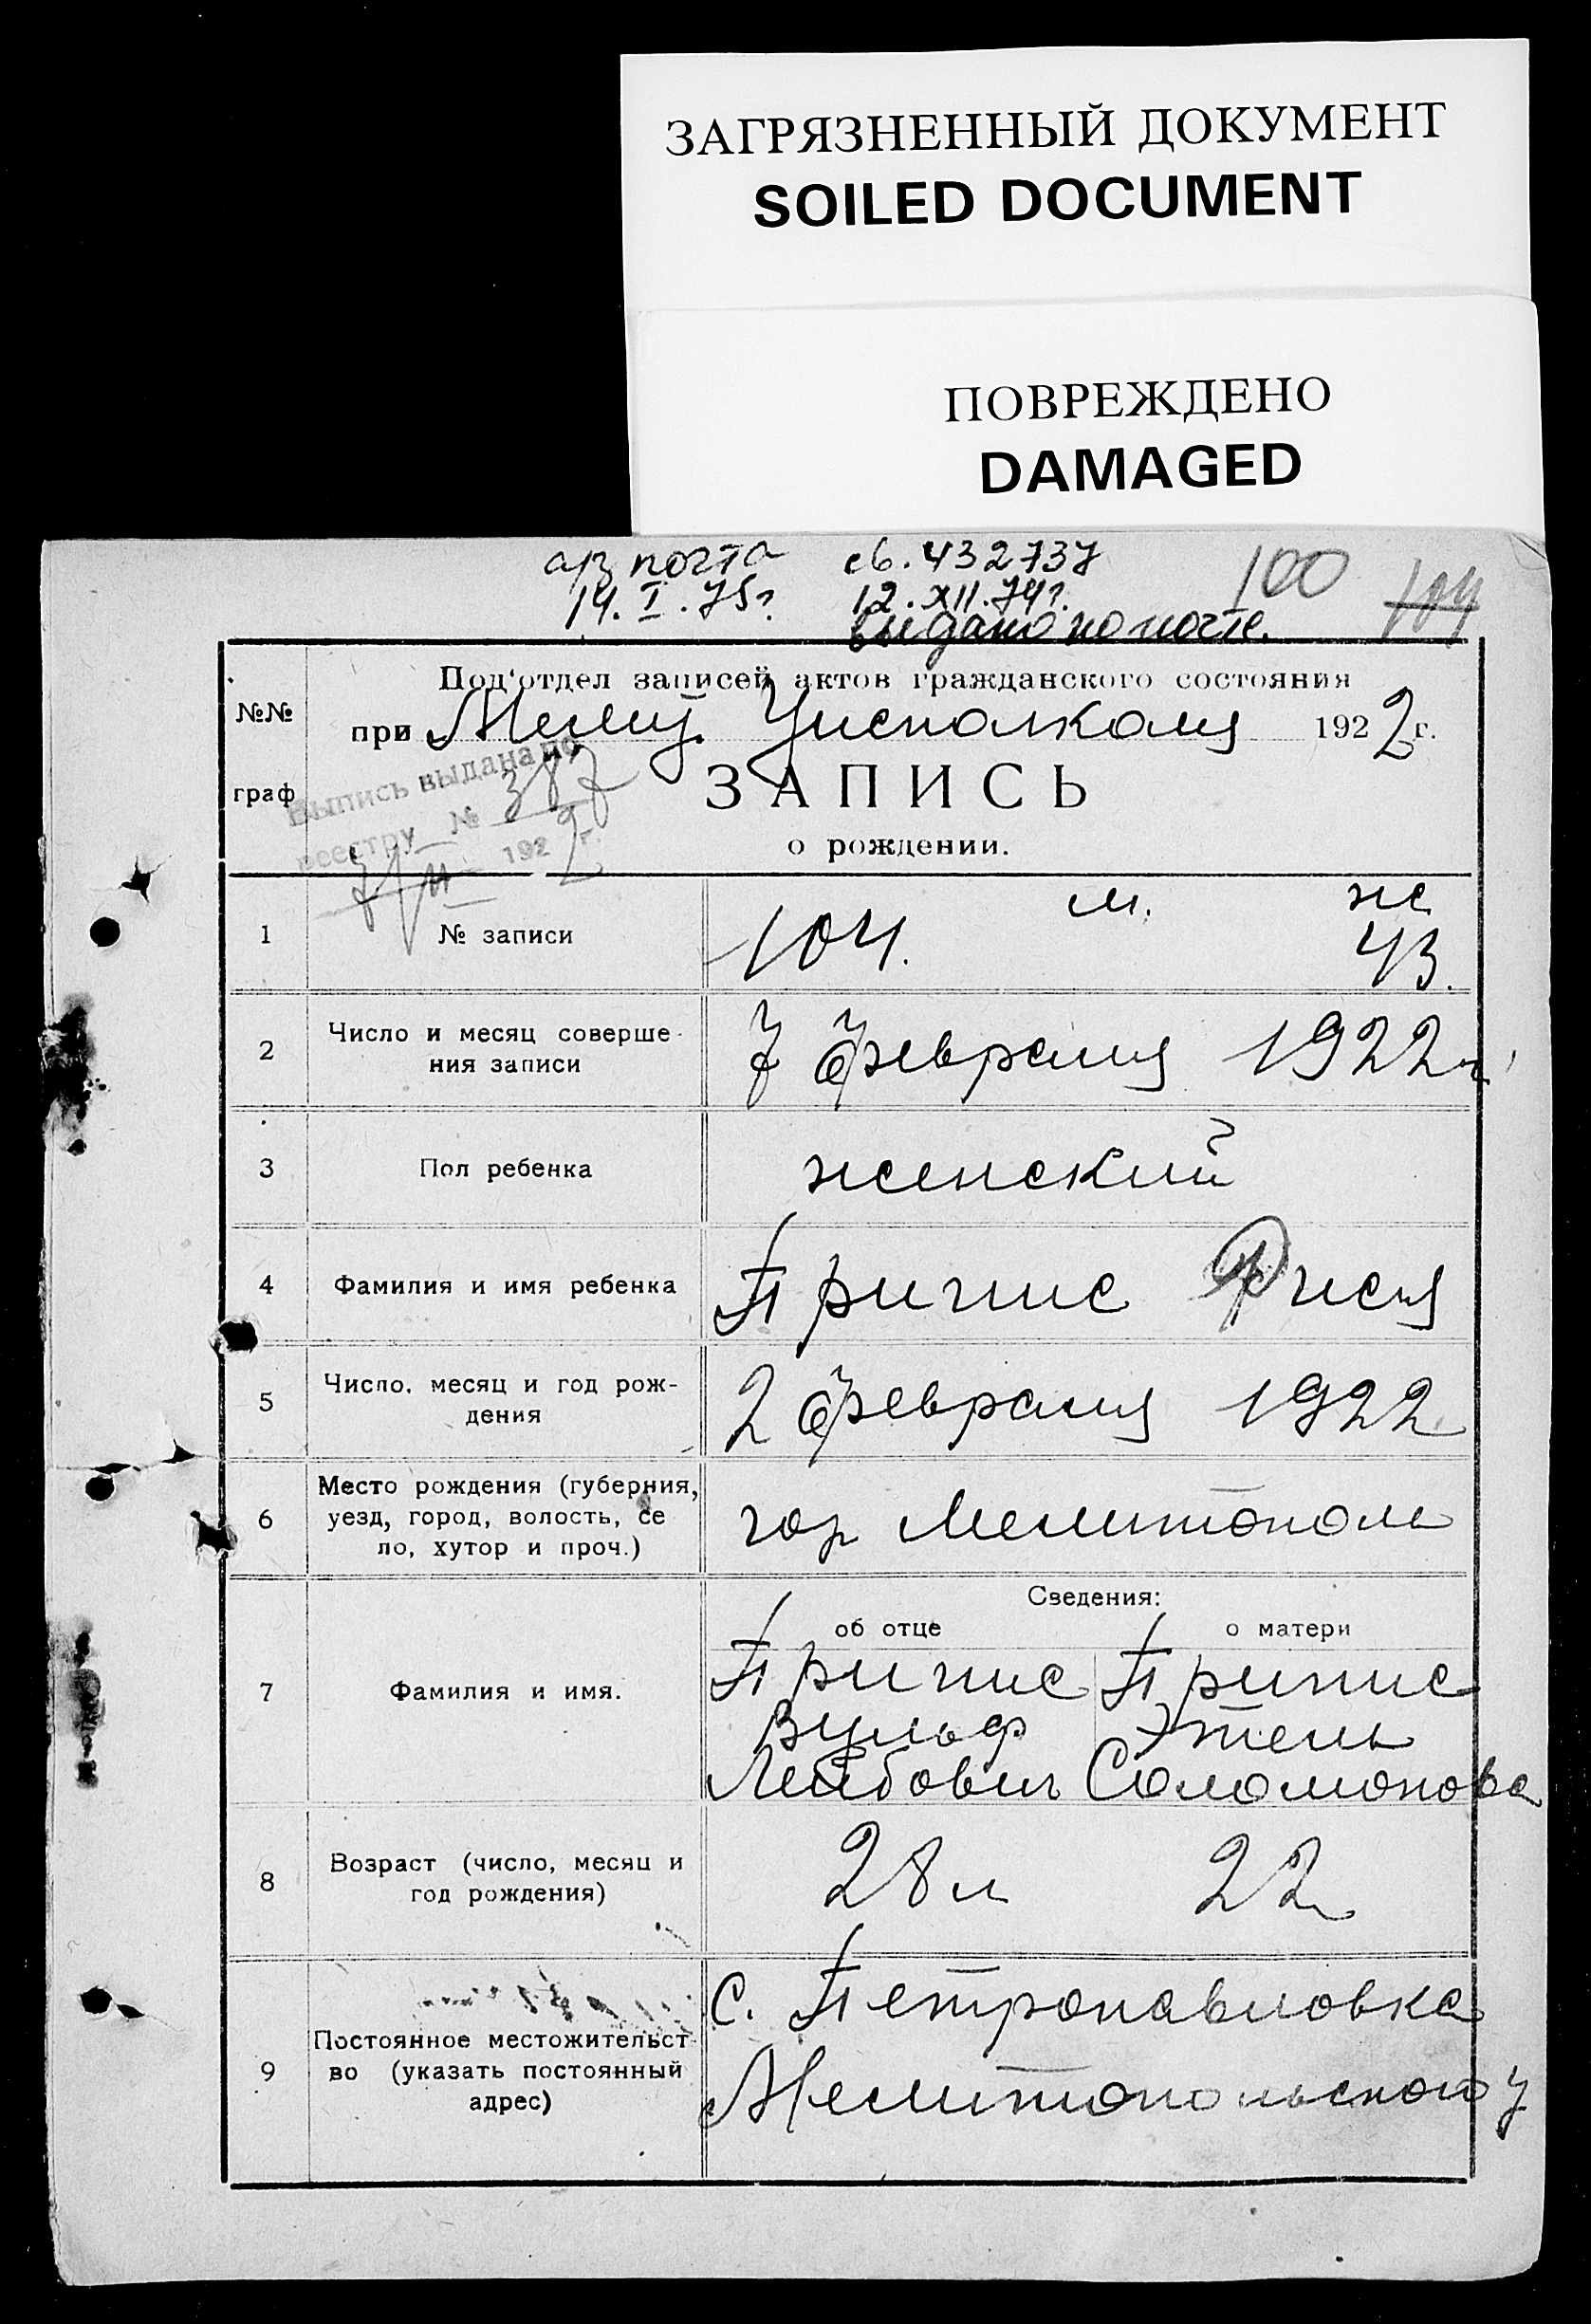 ЗАГРЯЗНЕННЫЙ ДОКУМЕНТ
SOILED DOCUMENT
ПОВРЕЖДЕНО
DAMAGED
почта св. 432737 100 104
14. I. 75г 12. XII. 74г.
выдано по почте.
Под'отдел записей актов гражданского состояния
№№
при Мелит. Уисполкома 1922г.
граф
Выпись выдана по
реестру № 387
7/II 1922г.
ЗАПИСЬ
о рождении.
м. ж
1 № записи 104. 43.
2 Число и месяц соверше-
ния записи
7 февраля 1922г
3 Пол ребенка женский
4 Фамилия и имя ребенка Припис
5 Число, месяц и год рож-
дения
2 февраля 1922
6 Место рождения (губерния,
уезд, город, волость, се
ло, хутор и проч.)
гор Мелитополь
Сведения:
об отце о матери
7 Фамилия и имя.
Припис Припис
Вульф Этель
Лейбович Соломонова
8 Возраст (число, месяц и
год рождения)
28 л 22
9 Постоянное местожительст-
во (указать постоянный
адрес)
с. Петропавловка
Мелитопольского у